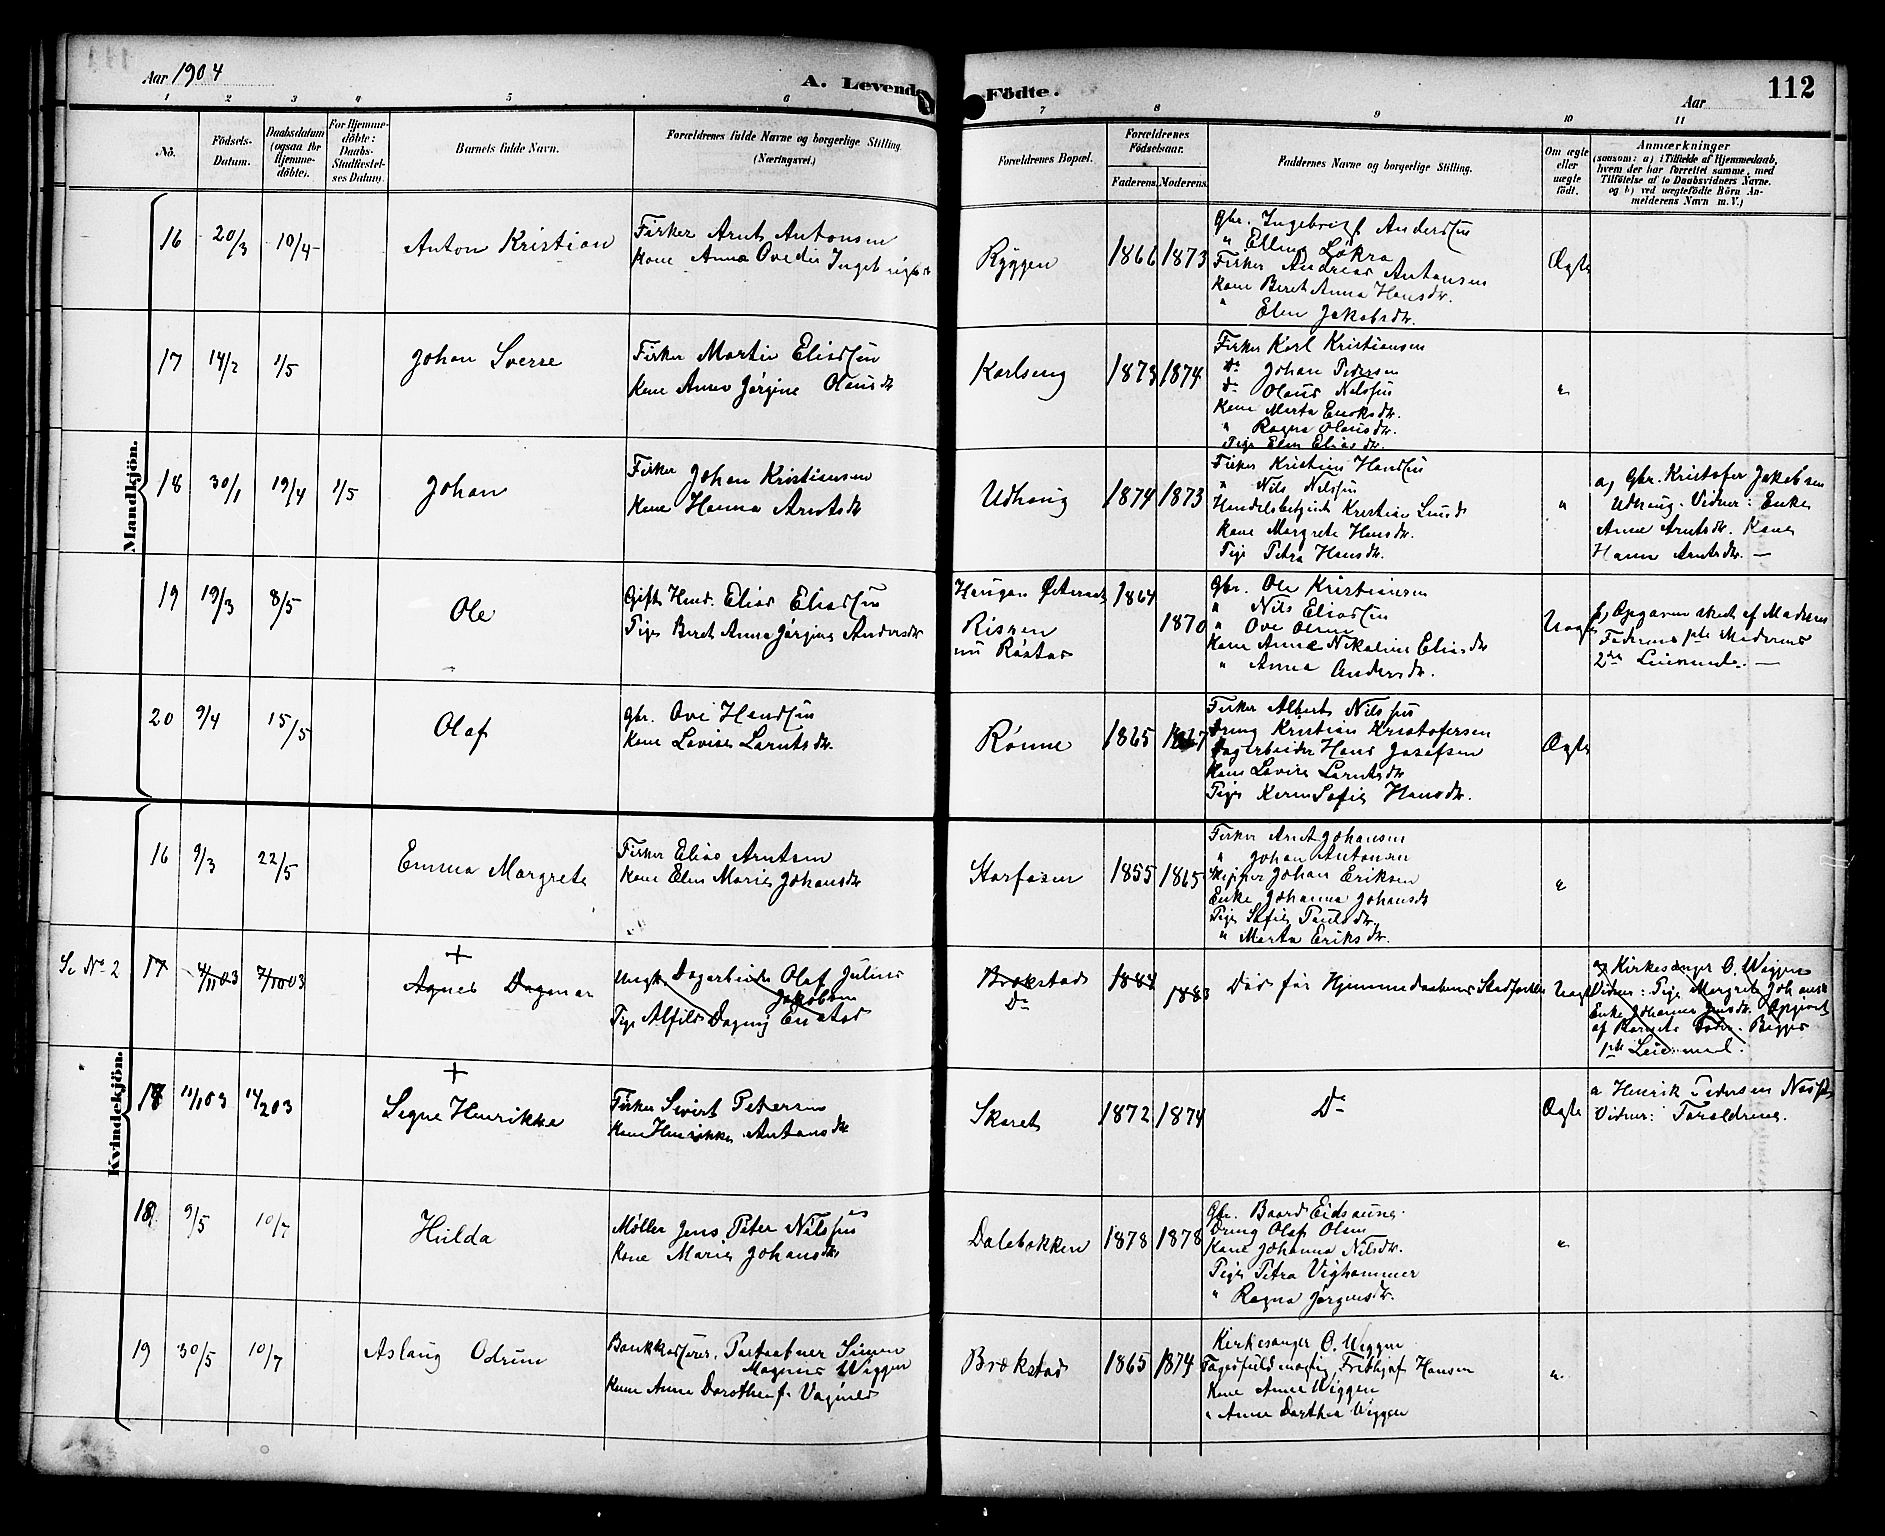 Aar 1904
A. Levende Födte.
112
Aar
1 2 3 4 5 6 7 8 9 10 11
Nō.
Födsels-Datum.
Daabsdatum (ogsaa for Hjemme-döbte).
For Hjemme-döbte: Daabs-Stadfæstel-ses Datum.
Barnets fulde Navn.
Forældrenes fulde Navne og borgerlige Stilling (Næringsvei.)
Forældrenes Bopæl.
Forældrenes Födselsaar.
Faderens. Moderens.
Faddernes Navne og borgerlige Stilling.
Om ægte eller uægte födt.
Anmærkninger
(saasom: a) i Tilfælde af Hjemmedaab,
hvem der har forrettet samme, med
Tilföielse af to Daabsvidners Navne.
og b) ved uægtefödte Börn An-
melderens Navn m. V.)
Mandkjön.
16 20/3 10/4 Anton Kristian
Fisker Arnt Antonsen
Kone Anna Ovedia Ingebrigtsdr
Ryggen 1866 1873
Gbr. Ingebrigt Anderssen
" Elling Løkra
Fisker Andreas Antonsen
Kone Beret Anna Hansdr.
" Elen Jakobsdr.
Ægte
17 14/2 1/5 Johan Sverre
Fisker Martin Eliassen
Kone Anna Jørgine Olausdr
Karlseng 1873 1874
Fisker Karl Kristiansen
Do Johan Pedersen
do Olaus Nilssen
Kone Marta Enoksdr.
" Ragna Olausdr.
Pige Elen Eliasdr.
"
18 30/1 19/4 1/5 Johan
Fisker Johan Kristiansen
Kone Hanna Arntsdr
Udhaug 1874 1873
Fisker Kristian Hanssen
" Nils Nilssen
Handelsbetjent Kristian Lund
Kone Margrete Hansdr.
Pige Petra Hansdr.
"
a, Gbr. Kristofer Jakobsen
Udhaug. Vidner: Enke
Anne Arntsdr. Kone
Hanna Arntsdr. —
19 19/3 8/5 Ole
Gift Husm. Elias Eliassen
Pige Beret Anna Jørgine Andersdr
Haugan Ørland
Rissen
nu Røstad
1864 1870
Gbr. Ole Kristiansen
" Nils Eliassen
" Ove Olsen
Kone Anna Nikoline Eliasdr
" Anna Andersdr.
Uægte
b, Opgaven skeet af Moderen
Faderens 1ste Moderens
2det Leiermaal. —
20 9/4 15/5 Olaf
Gbr. Ove Hanssen
Kone Lovise Larntsdr.
Rønne 1865 1867
Fisker Albert Nilssen
Dreng Kristian Kristofersen
Dagarbeider Hans Josefsen
Kone Lovise Larntsdr
Pige Karen Sofie Hansdr.
Ægte
Kvindekjön.
16 9/3 22/5 Emma Margrete
Fisker Elias Arntsen
Kone Elen Marie Johansdr
Storfosen 1855 1865
Fisker Arnt Johansen
" Johan Antonsen
Skipper Johan Eriksen
Enke Johanna Johansdr
Pige Sofie Paulsdr.
" Marta Eriksdr.
"
Se No 2 17 4/11 03 7/12 03 + Agnes Dagmar
Ungk. Dagarbeider Olaf Julius
Jakobsen
Pige Alfild Dagny Enstad
Brækstad
Do
1884 1883
Død før Hjemmedaabens Stadfæstelse
Uægte
a, Kirkesanger O. Wiggen
Vidner: Pige Margrete Johansdr
Enke Johanna Jensdr. Opgivet
af Barnets Fader. Begges
1ste Leiermaal.
18 11/1 03 14/2 03 + Signe Henrikke
Fisker Sivert Petersen
Kone Henrikke Antonsdr
Skaret 1872 1874
Do
Ægte
a Henrik Pedersen Næss
Vidner: Forældrene.
18 9/5 10/7 Hulda
Møller Jens Peter Nilssen
Kone Marie Johansdr
Dalebakken 1878 1878
Gbr. Baard Eidsaune.
Dreng Olaf Olsen
Kone Johanna Nilsdr.
Pige Petra Vighammer
" Ragna Jørgensdr.
"
19 30/5 10/7 Aslaug Odrun
Bankkasserer, Postaabner Simen
Magnus Wiggen
Kone Anna Dorothea f. Vagnild
Brækstad 1865 1874
Kirkesanger O. Wiggen
Sagsfuldmægtig Frithjof Hansen
Kone Anna Wiggen
" Anne Dorthea Wiggen
"